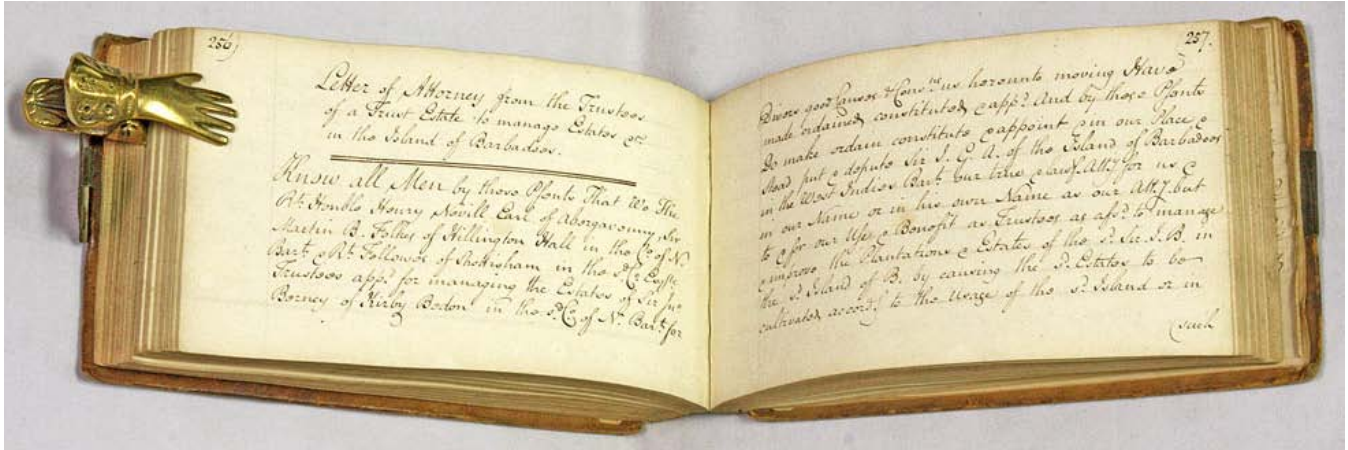 256)
Letter of Attorney from the Trustees
of a Trust Estate to manage Estates &c
in the Island of Barbadoes.
Know all Men by these Psents That We The
Rt. Honble Henry Nevill Earl of Abergavenny Sir
Martin B. Folkes of Hillington Hall in the Co. of N.
Bart. & Rt. Fellowes of Shottisham in the sd. Co. Esqre
Trustees appd. for managing the Estates of Sir Jno
Berney of Kirby Bedon in the sd. Co. of N. Bart. for
(257.
Divers good Causes & Cons.ns us hereunto moving Have
made ordained constituted & appd. And by these Psents
Do make ordain constitute & appoint & in our Place &
Stead put & depute Sir J. G. A. of the Island of Barbadoes
in the West Indies Bart. our true & lawf. Atty. for us &
in our Name or in his own Name as our Atty. but
to & for our Use & Benefit as Trustees as afsd. to manage
& improve the Plantations & Estates of the sd. Sir J. B. in
the sd. Island of B. by causing the sd. Estates to be
cultivated accordg. to the Usage of the sd. Island or in
(such